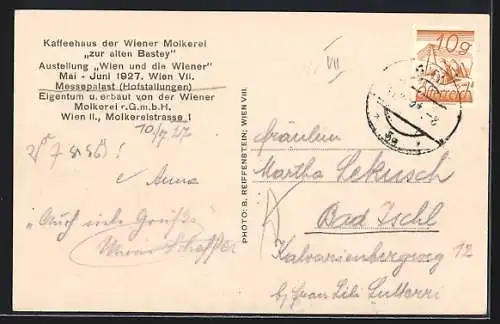 Kaffeehaus der Wiener Molkerei
„zur alten Bastey"
Austellung „Wien und die Wiener"
Mai - Juni 1927. Wien VII.
Messepalast (Hofstallungen)
Eigentum u. erbaut von der Wiener
Molkerei r.G.m.b.H.
Wien II., Molkereistrasse 1
10/7. 27
Anna
„Auch viele Grüße"
PHOTO: B. REIFFENSTEIN; WIEN VIII.
VII
10g
Fräulein
Martha
Bad Ischl
Kalvarienbergweg 12
b/ Frau Lili